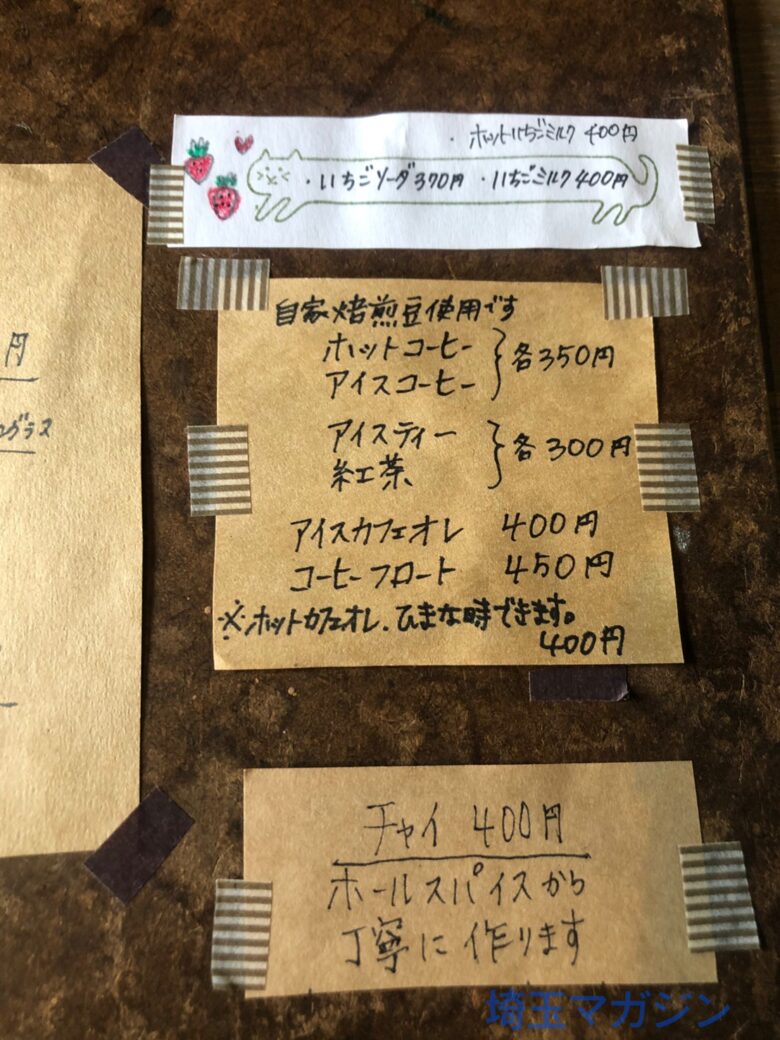 ・ホットいちごミルク 400円
・いちごソーダ370円 ・いちごミルク400円
自家焙煎豆使用です
ホットコーヒー
アイスコーヒー
各350円
アイスティー
紅茶
各300円
アイスカフェオレ 400円
コーヒーフロート 450円
※ホットカフェオレ、ひまな時できます。
400円
円
グラス
チャイ 400円
ホールスパイスから
丁寧に作ります
埼玉マガジン